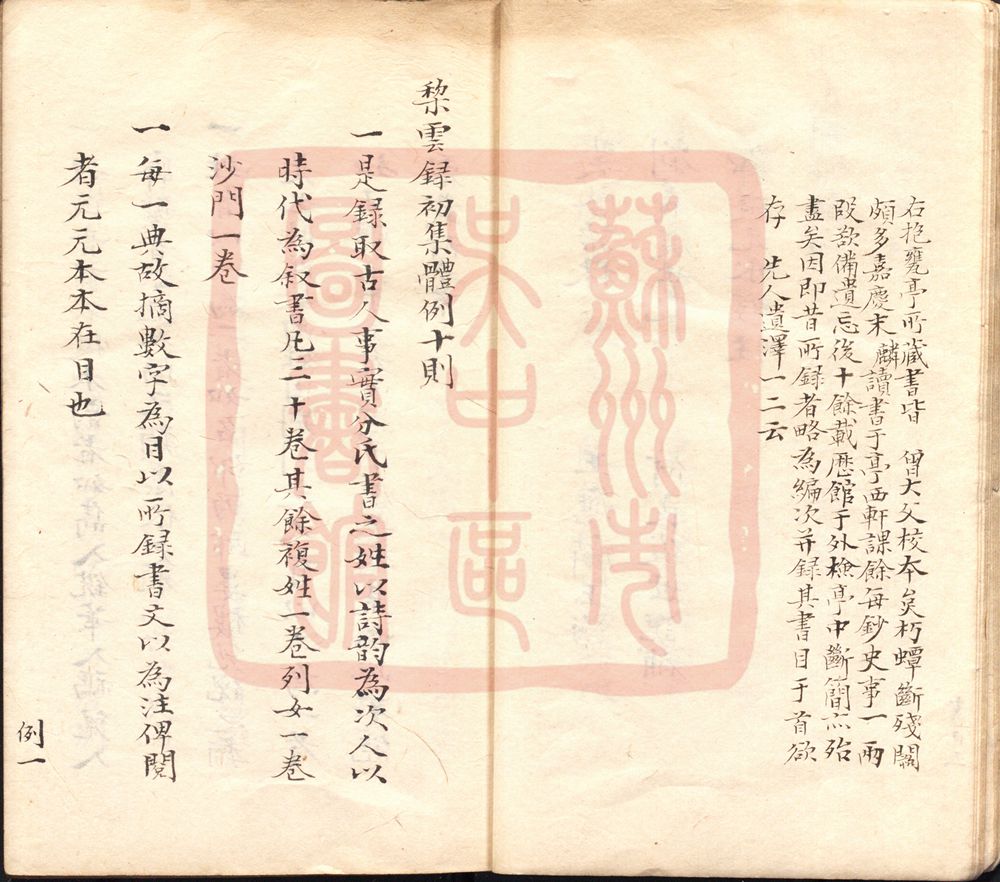 右抱甕亭所藏書皆 曾大父校本矣朽蟫斷殘闕
頗多嘉慶末麟讀書于亭西軒課餘每鈔史事一兩
段欲備遺忘後十餘載歷館于外檢亭中斷簡亦殆
盡矣因即昔所錄者略為編次并錄其書目于首欲
存 先人遺澤一二云
棃雲録初集體例十則
一是録取古人事實分氏書之姓以詩韵為次人以
時代為叙書凡三十卷其餘複姓一卷列女一卷
沙門一卷
一每一典故摘數字為目以所録書文以為注俾閱
者元元本本在目也
例一
蘇州市
吴中區
圖書館